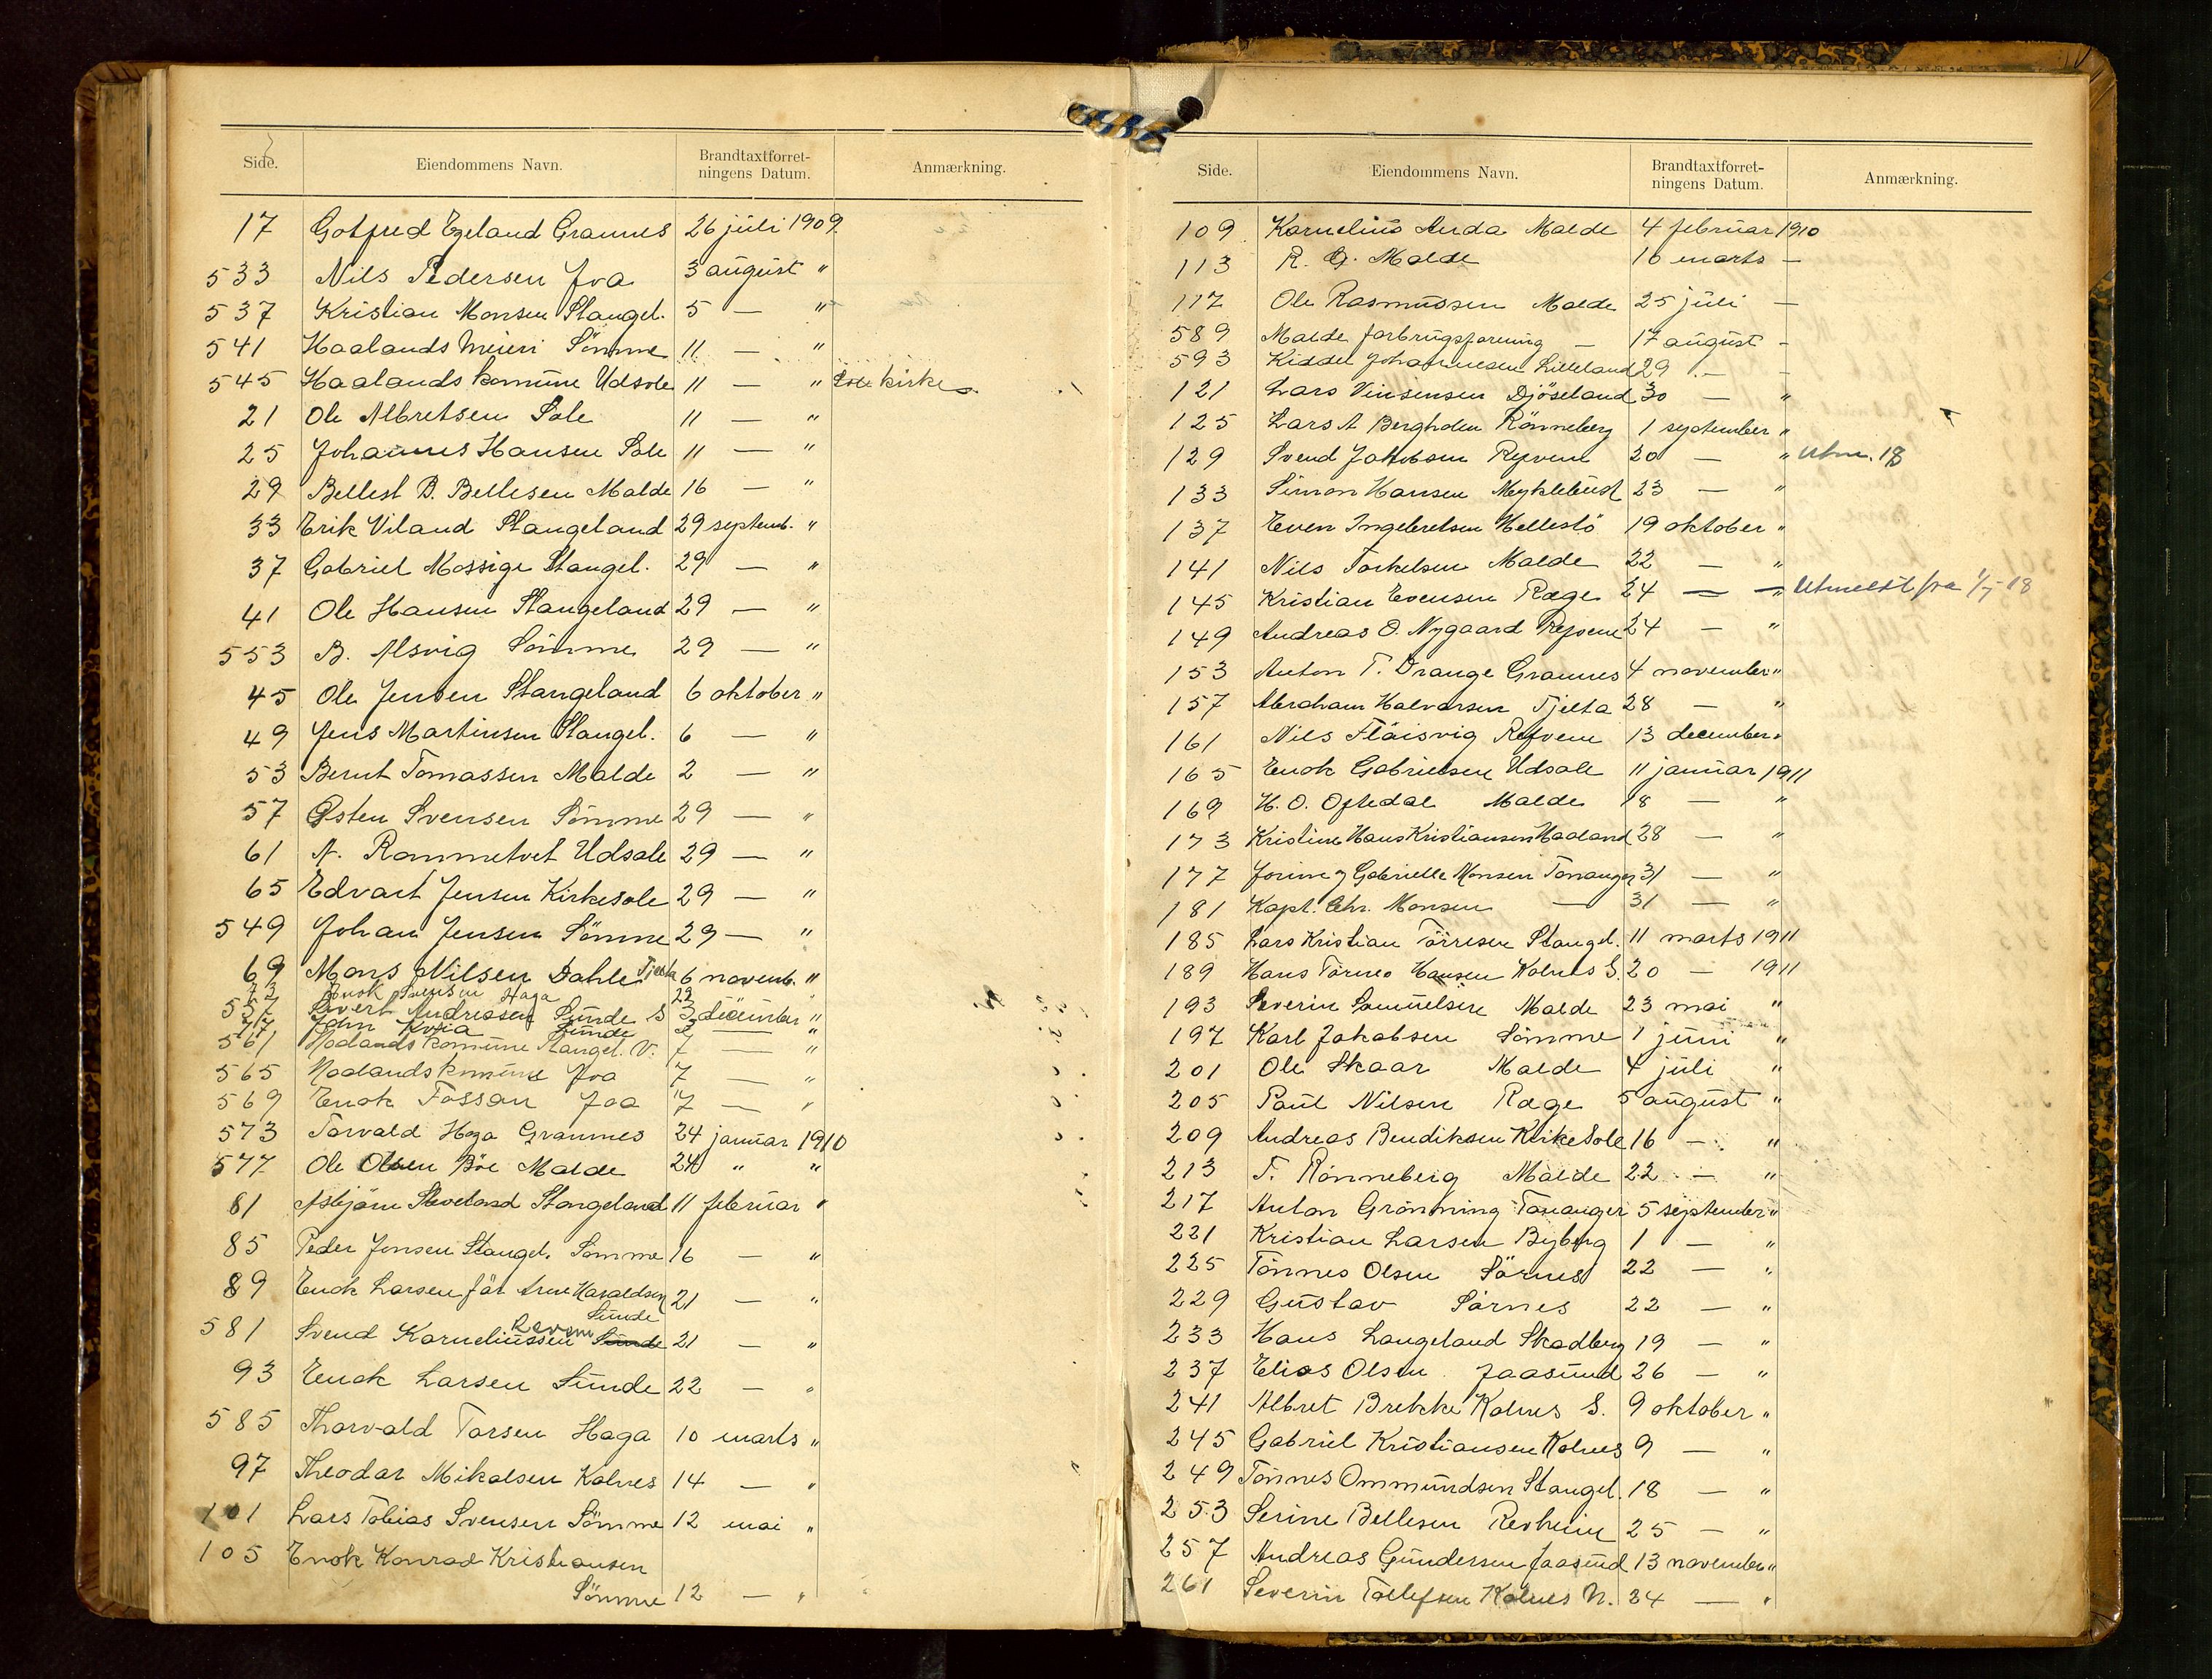 Side. Eiendommens Navn. Brandtaxtforret-ningens Datum. Anmærkning.
17 Gotfred Egeland Grannes 26 juli 1909.
533 Nils Pedersen Joa 3 august "
537 Kristian Monsen Stangel. 5 — "
541 Haalands Meieri Sömme 11 — "
545 Haalands komune Udsole 11 — " Sole kirke
21 Ole Albretsen Sole 11 — "
25 Johannes Hansen Sole 11 — "
29 Bellest B. Bellesen Malde 16 — "
33 Erik Viland Stangeland 29 septemb. "
37 Gabriel Mossige Stangel. 29 — "
41 Ole Hansen Stangeland 29 — "
553 B. Alsvig Sömme 29 — "
45 Ole Jensen Stangeland 6 oktober "
49 Jens Martinsen Stangel. 6 — "
53 Bernt Tomassen Malde 2 — "
57 Østen Svensen Sömme 29 — "
61 A. Rommetvet Udsole 29 — "
65 Edvart Jensen Kirkesole 29 — "
549 Johan Jensen Sömme 29 — "
69 Mons Nilsen Dahle Tjelta 6 novemb. "
73 Enok Svensen Haga 22 "
557 Sivert Andressen Sunde S 3 december "
77 John Kvia Sunde 3 — "
561 Haalands komune Stangel. V. 7 — "
565 Haalands komune Joa 7 — "
569 Enok Fossan Joa 7 — "
573 Torvald Haga Grannes 24 januar 1910
577 Ole Olsen Böe Malde 24 " "
81 Asbjörn Skveland Stangeland 11 februar "
85 Peder Jonsen Stangel. Sömme 16 — "
89 Enok Larsen får Arne Haraldsen Sunde 21 — "
581 Svend Korneliussen Sunde Revem 21 — "
93 Enok Larsen Sunde 22 — "
585 Thorvald Torsen Haga 10 marts "
97 Theodor Mikalsen Kolnes 14 — "
101 Lars Tobias Svensen Sömme 12 mai "
105 Enok Konrad Kristiansen
Sömme 12 — "
Side. Eiendommens Navn. Brandtaxtforret-ningens Datum. Anmærkning.
109 Kornelius Anda Malde 4 februar 1910
113 R. G. Malde 10 marts —
117 Ole Rasmussen Malde 25 juli —
589 Malde forbrugsforening — 17 august -
593 Kiddel Johannesen Lilleland 29 — -
121 Lars Vinsensen Djöseland 30 — "
125 Lars A Bergholm Rönneberg 1 september "
129 Svend Jakobsen Refvem 20 — " Utm. 18
133 Simon Hansen Myklebust 23 — "
137 Even Ingebretsen Hellestö 19 oktober "
141 Nils Torkelsen Malde 22 — "
145 Kristian Evensen Ræge 24 — " Utmeldt fra 1/7-18
149 Andreas O. Nygaard Refvem 24 — "
153 Anton T. Orange Grannes 4 november "
157 Abraham Halvorsen Tjelta 28 — "
161 Nils Flåisvig Refvem 13 december "
165 Enok Gabrielsen Udsole 11 januar 1911
169 H. O. Oftedal Malde 18 — "
173 Kristine Hans Kristiansen Haaland 28 — "
177 Jorine og Gabrielle Monsen Tananger 31 — "
181 Kapt. Chr. Monsen — 31 — "
185 Lars Kristian Törresen Stangel. 11 marts 1911
189 Hans Törres Hansen Kolnes S. 20 — 1911
193 Severin Samuelsen Malde 23 mai "
197 Karl Jakobsen Sömme 1 juni "
201 Ole Skaar Malde 4 juli "
205 Paul Nilsen Ræge 5 august "
209 Andreas Bendiksen KirkeSole 16 — "
213 T. Rönneberg Malde 22 — "
217 Anton Grönning Tananger 5 september "
221 Kristian Larsen Byberg 1 — "
225 Tönnes Olsen Sörnes 22 — "
229 Gustav Sörnes 22 — "
233 Hans Langeland Skadberg 19 — "
237 Elias Olsen Jaasund 26 — "
241 Albret Brekke Kolnes S. 9 oktober "
245 Gabriel Kristiansen Kolnes 9 — "
249 Tönnes Ommundsen Stangel. 18 — "
253 Serine Bellesen Revheim 25 — "
257 Andreas Gundersen Jaasund 13 november "
261 Severin Tollefsen Kolnes N. 24 — "